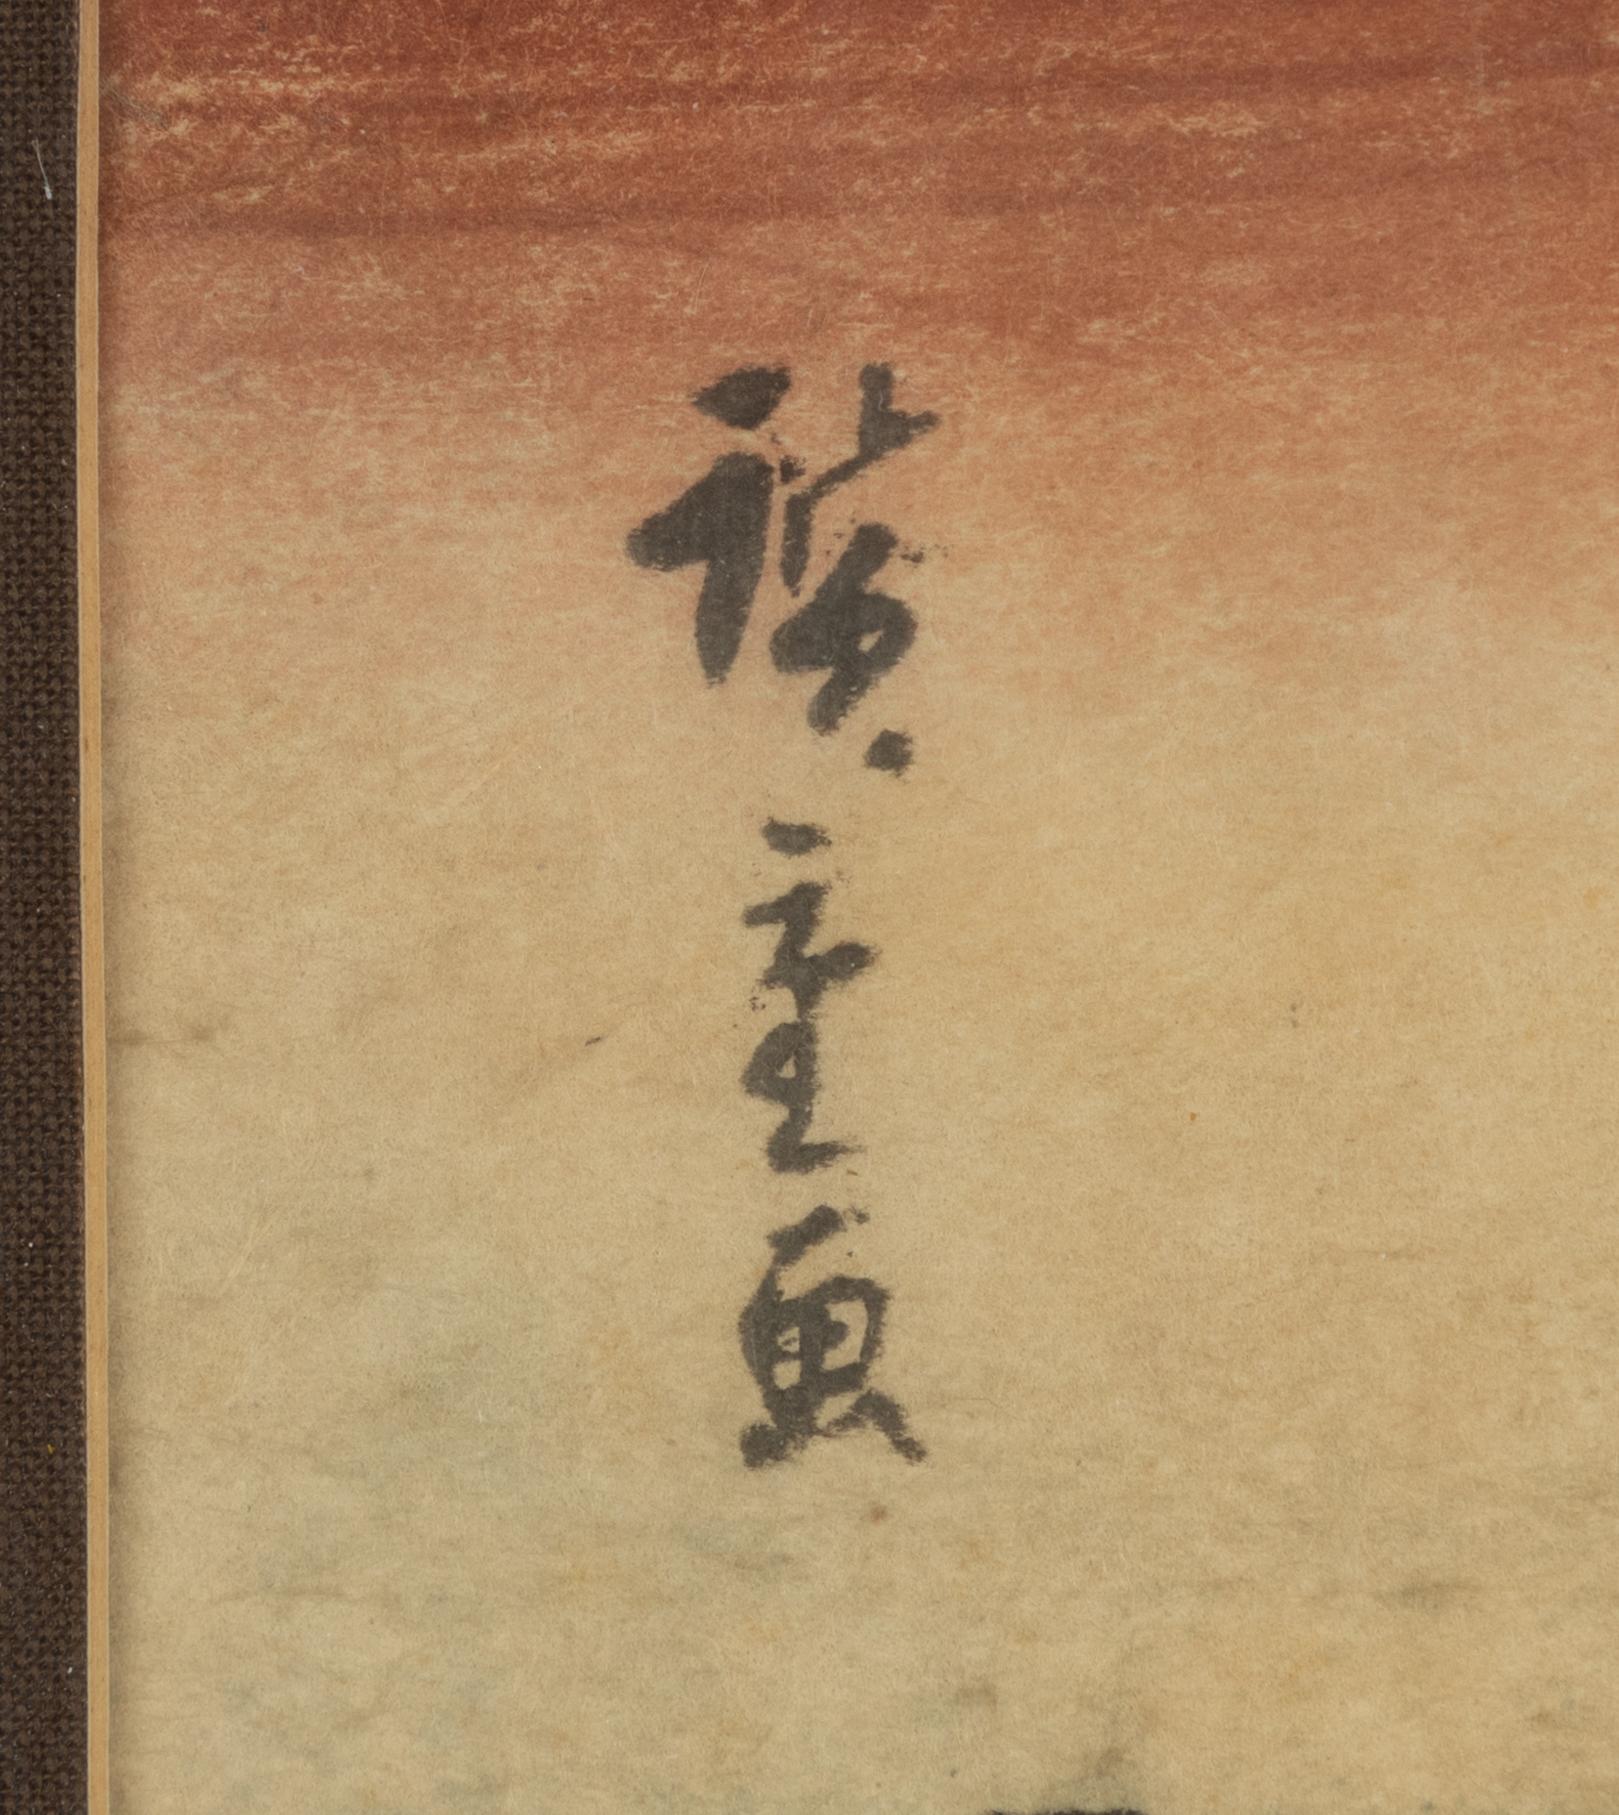 廣重画